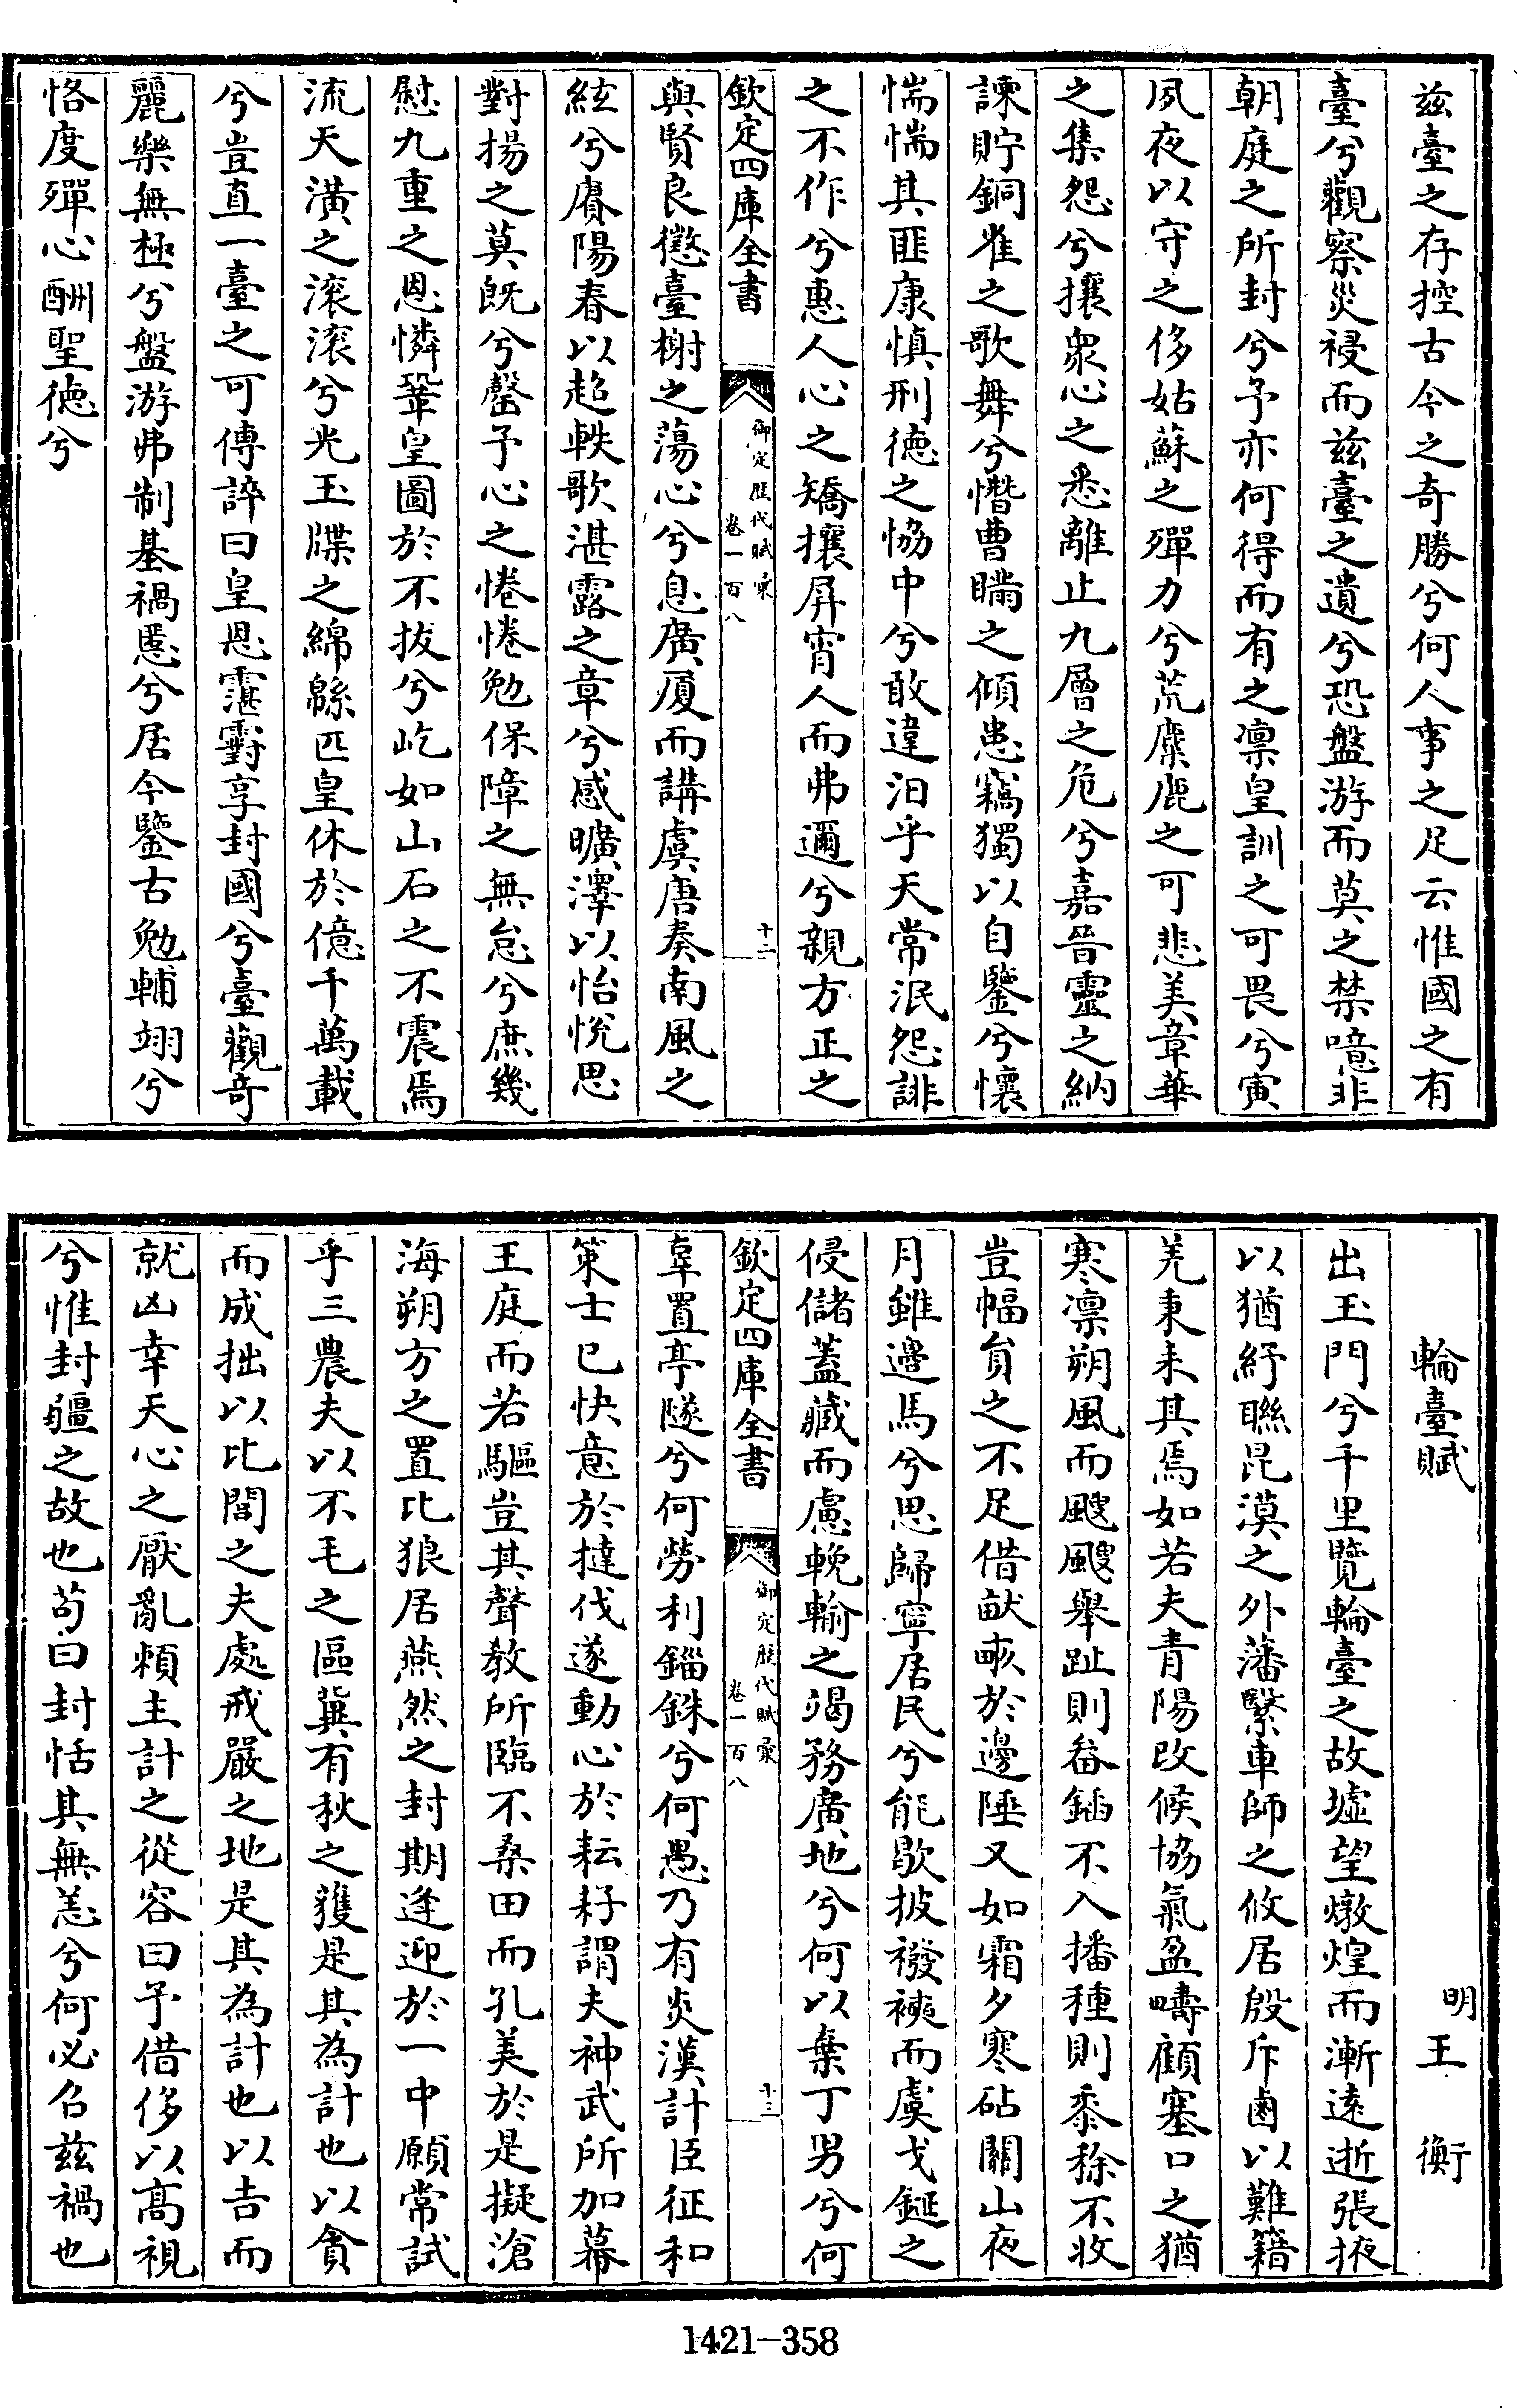 兹臺之存控古今之竒勝兮何人事之足云惟國之有
臺兮觀察災祲而兹臺之遺兮恐盤游而莫之禁噫非
朝庭之所封兮予亦何得而有之凛皇訓之可畏兮寅
夙夜以守之侈姑蘇之殫力兮荒麋鹿之可悲美章華
之集怨兮攘衆心之悉離止九層之危兮嘉晉靈之納
諫貯銅雀之歌舞兮憯曹瞞之傾患竊獨以自鑒兮懷
惴惴其匪康慎刑徳之恊中兮敢違汨乎天常泯怨誹
之不作兮惠人心之矯攘屏宵人而弗邇兮親方正之
欽定四庫全書
御定歴代賦彙
卷一百八
十二
與賢良懲臺榭之蕩心兮息廣厦而講虞唐奏南風之
絃兮賡陽春以趂軼歌湛露之章兮感曠澤以怡悅思
對揚之莫旣兮罄予心之惓惓勉保障之無怠兮庶幾
慰九重之恩憐鞏皇圖於不拔兮屹如山石之不震焉
流天潢之滚滚兮光玉牒之綿緜匹皇休於億千萬載
兮豈直一臺之可傳誶曰皇恩霮霨享封國兮臺觀竒
麗樂無極兮盤游弗制基禍慝兮居今鑒古勉輔翊兮
恪度殫心酬聖徳兮
輪臺賦
明王衡
出玉門兮千里覽輪臺之故墟望燉煌而漸逺逝張掖
以猶紓聯昆漠之外藩緊車師之攸居殷斥鹵以難籍
羌秉耒其焉如若夫青陽改候協氣盈疇顧塞口之猶
寒凛朔風而颼颼舉趾則畚鍤不入播種則黍稌不收
豈幅員之不足借畎畝於邊陲又如霜夕寒砧關山夜
月雖邊馬兮思歸寧居民兮能歇披襏襫而虞戈鋋之
侵儲蓋藏而慮輓輸之竭務廣地兮何以棄丁男兮何
欽定四庫全書
御定歴代賦彙
卷一百八
十三
辜置亭隧兮何勞利錙銖兮何愚乃有炎漢計臣征和
策士已快意於撻伐遂動心於耘耔謂夫神武所加幕
王庭而若驅豈其聲教所臨不桑田而孔美於是擬滄
海朔方之置比狼居燕然之封期逢迎於一中願常試
乎三農夫以不毛之區冀有秋之獲是其為計也以貪
而成拙以比閭之夫處戒嚴之地是其為計也以吉而
就凶幸天心之厭亂頼主計之從容曰予借侈以髙視
兮惟封疆之故也苟曰封恬其無恙兮何必召兹禍也
1421-358